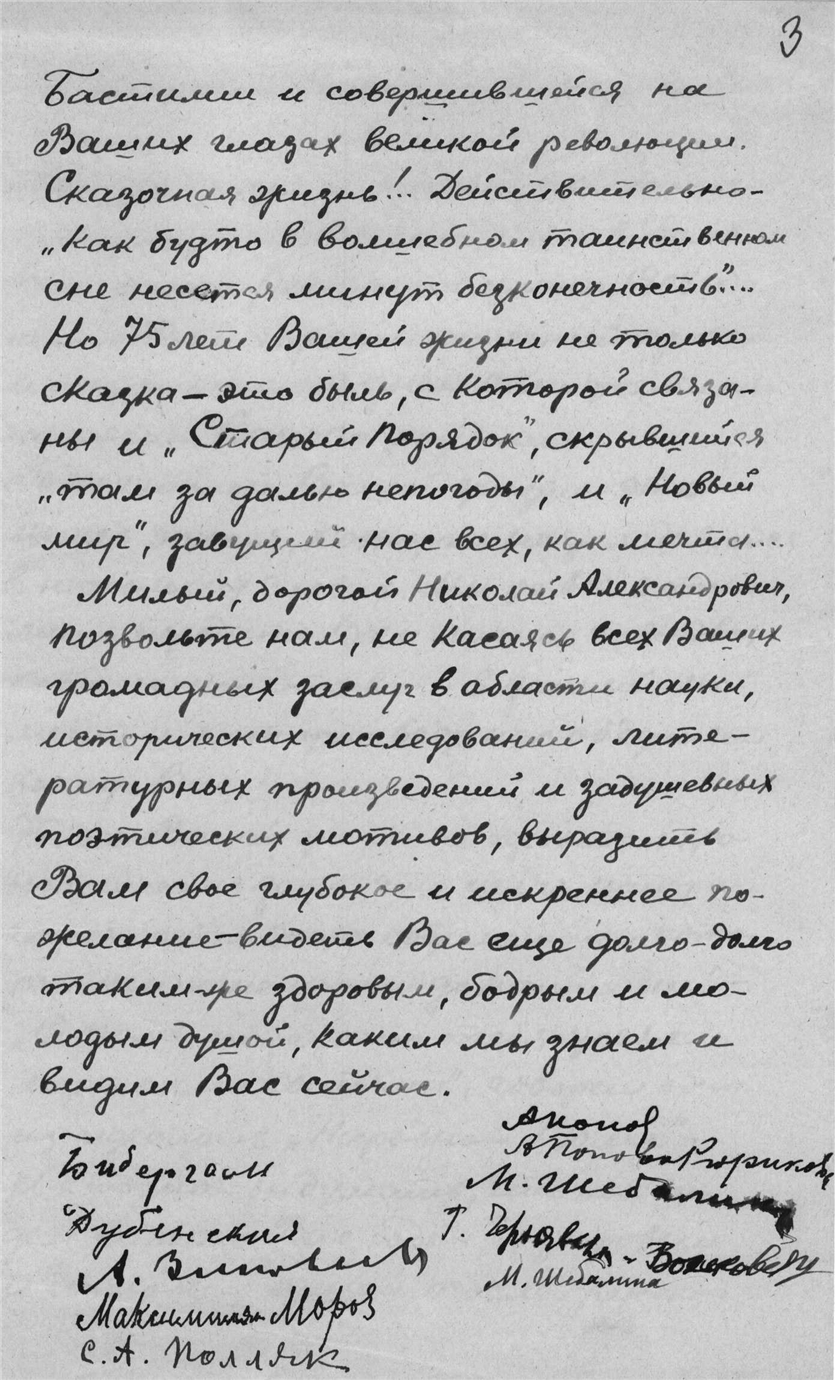 3
Бастилии и совершившейся на
Ваших глазах великой революции.
Сказочная жизнь!.. Действительно-
„Как будто в волшебном таинственном
сне несется минут безконечность"....
Но 75 лет Вашей жизни не только
сказка — это быль, с которой связа-
ны и „Старый порядок", скрывшийся
„там за далью непогоды", и „Новый
мир", завущий нас всех, как мечта....
Милый, дорогой Николай Александрович,
позвольте нам, не касаясь всех Ваших
громадных заслуг в области науки,
исторических исследований, лите-
ратурных произведений и задушевных
поэтических мотивов, выразить
Вам свое глубокое и искреннее по-
желание - видеть Вас еще долго-долго
таким-же здоровым, бодрым и мо-
лодым душой, каким мы знаем и
видим Вас сейчас.
А Попов
Бибергаль
М. Шебалин
Дубенская
М. Шебалина
Максимилян Мороз
С. А. Полляк